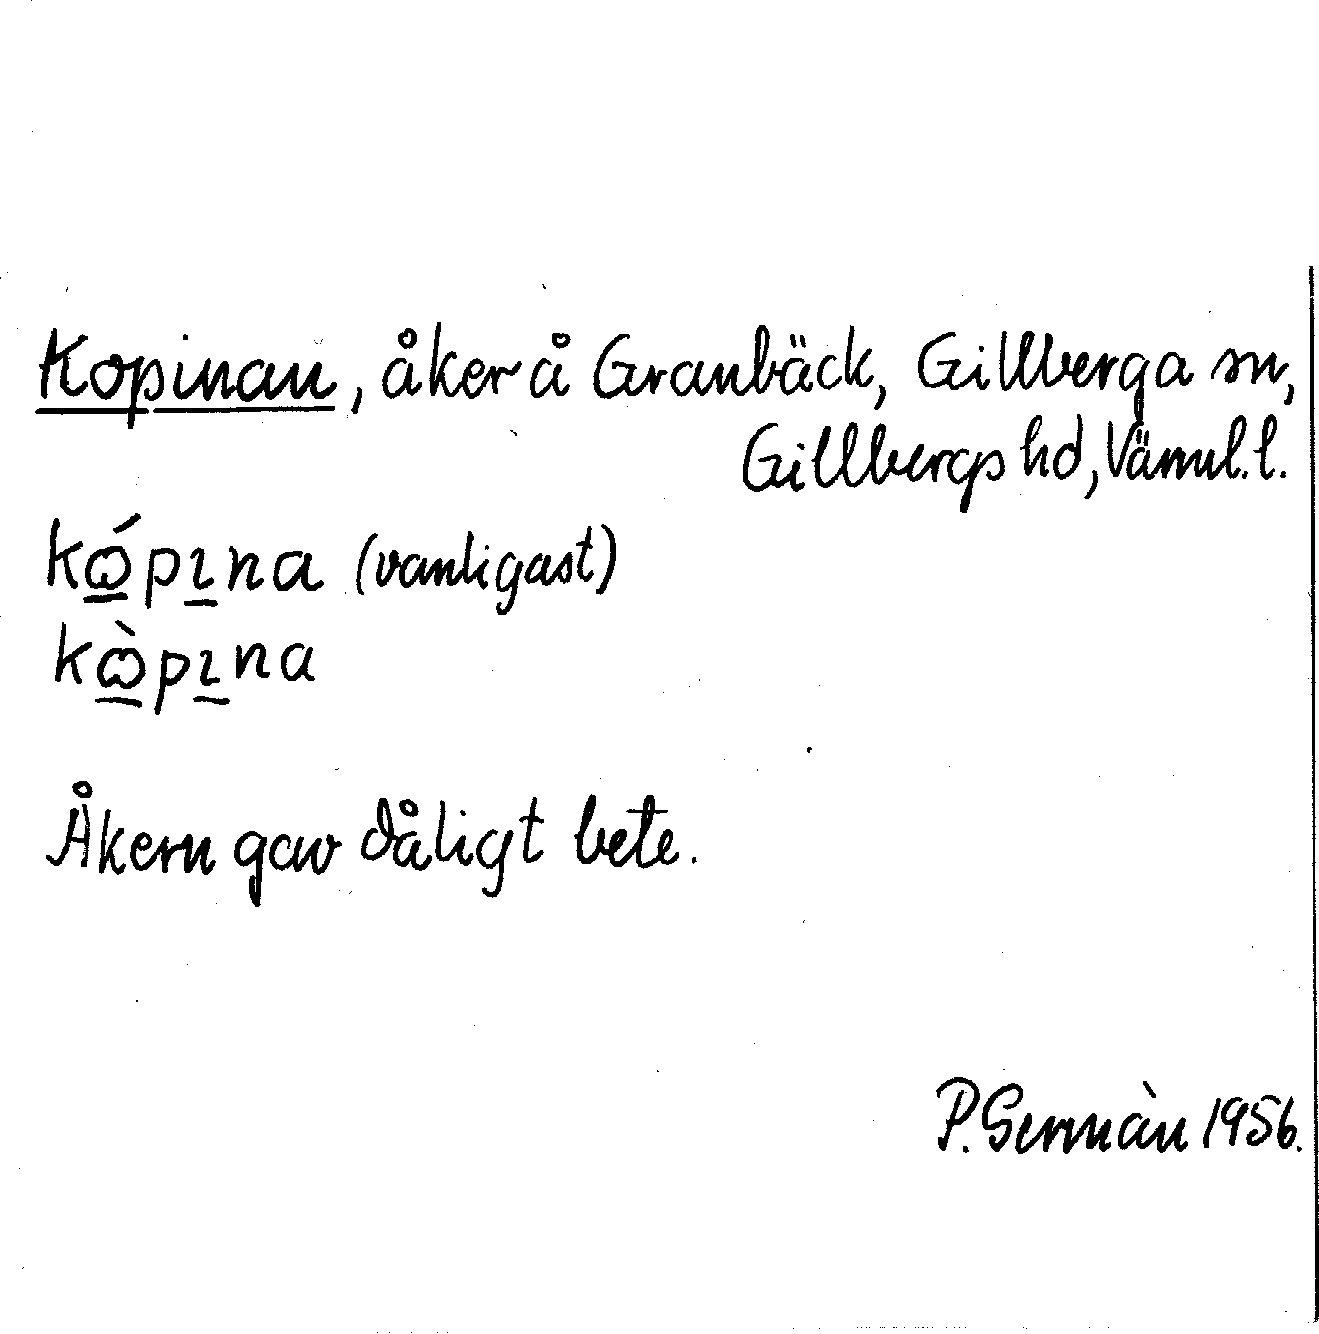 Kopinan, åker å Granbäck, Gillberga sn,
Gillbergs hd, Värml. l.
kώ̲pı̲na (vanligast)
kὼ̲pı̲na
Åkern gav dåligt bete.
P. Germàn 1956.